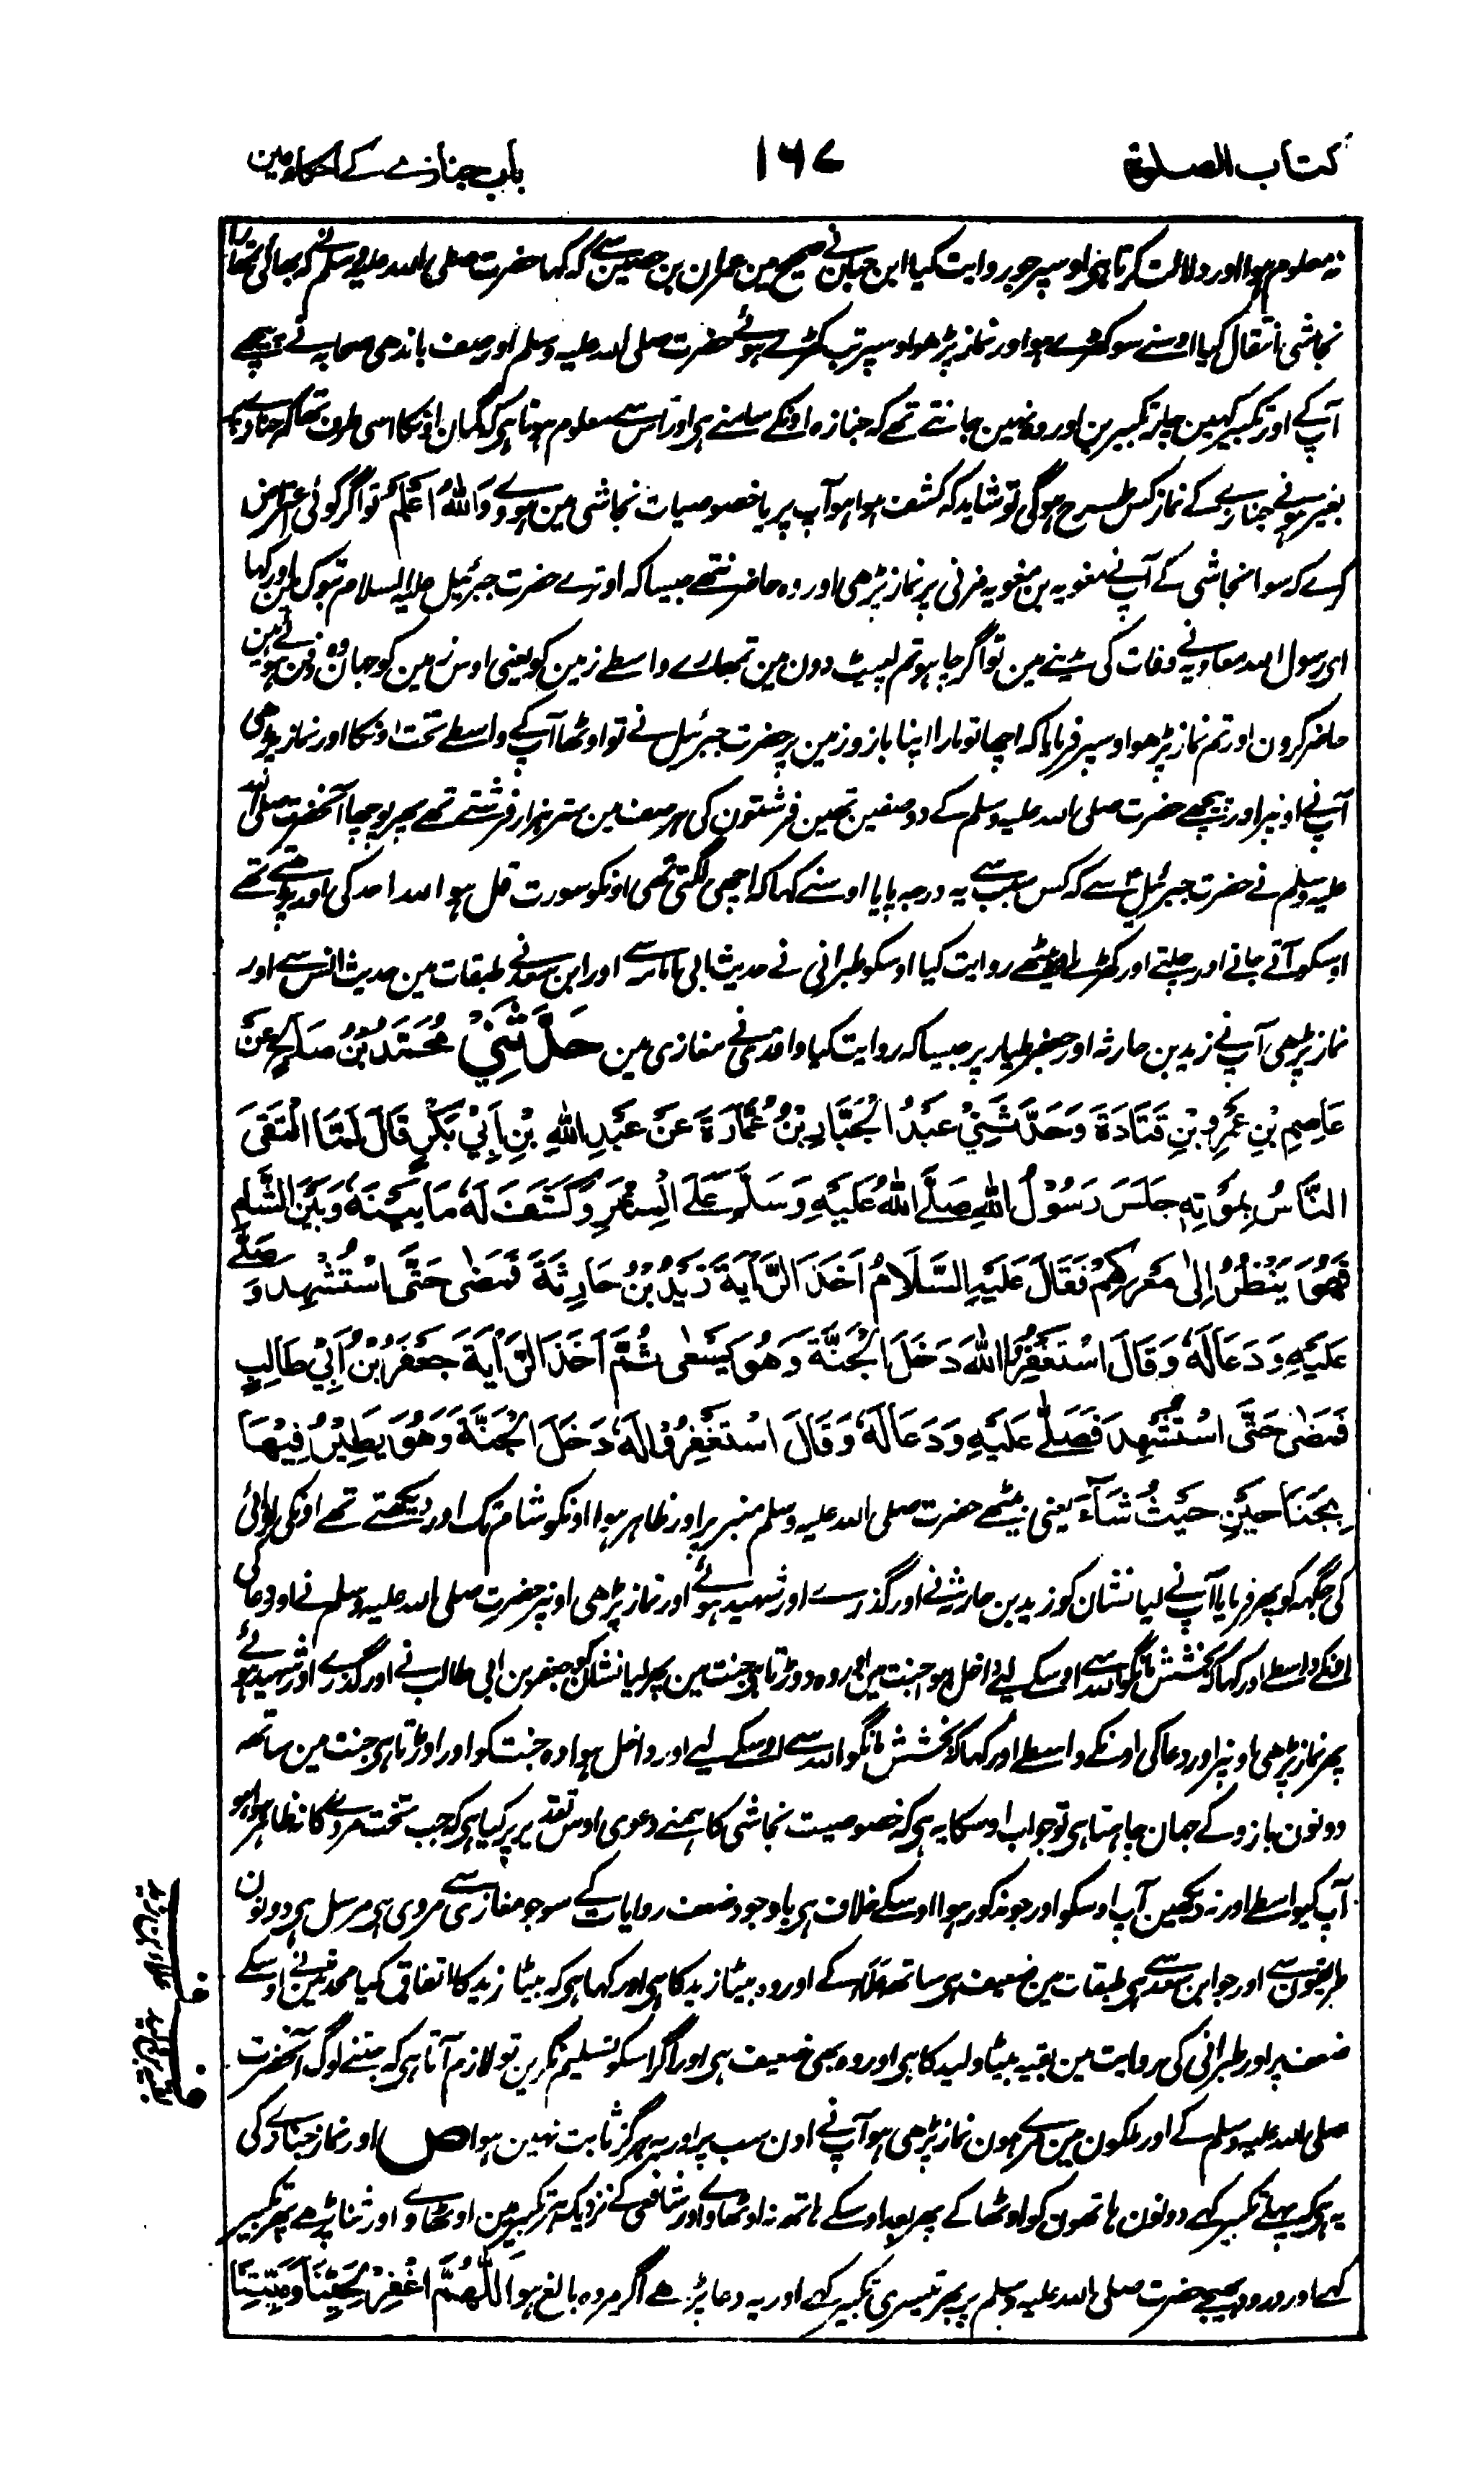 کتاب الصلوة
۱۶۷
باب جنازے کے احکام مین
نہ معلوم ہوا اور دلالت کرتا ہی اوسپر جو روایت کیا ابن حبان نے صحیح مین عمران بن حصین سے کہ کہا حضرت صلی اللہ علیہ وسلم نے کہ بھائی تمھارا
نجاشی انتقال کیا اوسنے سو کھڑے ہو اور نماز پڑھو اوسپر تب کھڑے ہوئے حضرت صلی اللہ علیہ وسلم اور صف باندھی صحابہ نے پیچھے
آپ کے اور تکبیر کہین چار تکبیرین اور وہ نہین جانتے تھے کہ جنازہ اونکے سامنے ہی اور اس سے معلوم ہوتا ہی کہ گمان اونکا اسی طرف تھا کہ جنازے
بغیر ہونے جنازے کے نماز کس طرح ہوگی تو شاید کہ کشف ہوا ہو آپ پر یا خصوصیات نجاشی مین ہووے وَاللهُ اَعْلَمُ تو اگر کوئی اعتراض
کرے کہ سوا نجاشی کے آپ نے معویہ بن معویہ مزنی پر نماز پڑھی اور وہ حاضر نتھے جیسا کہ اوترے حضرت جبرئیل علیہ السلام تبوک مین اور کہا
ای رسول اللہ معاویہ نے وفات کی مدینے مین تو اگر چاہو تم لپیٹ دون مین تمھارے واسطے زمین کو یعنی اوس زمین کو جہان وہ دفن ہوئے ہین
حاضر کرون اور تم نماز پڑھو اوسپر فرمایا کہ اچھا تو مارا اپنا بازو زمین پر حضرت جبرئیل نے تو اوٹھا آپ کے واسطے تخت اونکا اور نماز پڑھی
آپ نے اونپر اور پیچھے حضرت صلی اللہ علیہ وسلم کے دو صفین تھین فرشتون کی ہر صف مین ستر ہزار فرشتے تھے پھر پوچھا آنحضرت صلی اللہ
علیہ وسلم نے حضرت جبرئیل سے کہ کس سبب سے یہ درجہ پایا اوسنے کہا کہ اچھی لگتی تھی اونکو سورت قل ہو اللہ احد کی اور پڑھتے تھے
اوسکو آتے جاتے اور چلتے اور کھڑے بیٹھے روایت کیا اوسکو طبرانی نے حدیث ابی امامہ سے اور ابن سعد نے طبقات مین حدیث انس سے اور
نماز پڑھی آپ نے زید بن حارثہ اور جعفر طیار پر جیسا کہ روایت کیا واقدی نے مغازی مین حَدَّثَنِيْ مُحَمَّدُ بْنُ صَالِحٍ عَنْ
عَاصِمِ بْنِ عُمَرَ وبْنِ قَتَادَةَ وَحَدَّثَنِيْ عَبْدُ الْجَبَّارِ بْنُ عُمَارَةَ عَنْ عَبْدِ اللهِ بْنِ اَبِيْ بَكْرٍ قَالَ لَمَّا الْتَقَى
النَّاسُ بِمُوْتَةَ جَلَسَ رَسُوْلُ اللهِ صَلَّى اللهُ عَلَيْهِ وَسَلَّمَ عَلَى الْمِنْبَرِ وَكُشِفَ لَهٗ مَا بَيْنَهٗ وَبَيْنَ الشَّامِ
فَهُوَ يَنْظُرُ اِلٰى مَعْرَكِهِمْ فَقَالَ عَلَيْهِ السَّلَامُ اَخَذَ الرَّايَةَ زَيْدُ بْنُ حَارِثَةَ فَمَضٰى حَتَّى اسْتُشْهِدَ وَ صَلّٰى
عَلَيْهِ وَدَعَا لَهٗ وَقَالَ اسْتَغْفِرُوا اللهَ دَخَلَ الْجَنَّةَ وَهُوَ يَسْعٰى ثُمَّ اَخَذَ الرَّايَةَ جَعْفَرُ بْنُ اَبِيْ طَالِبٍ
فَمَضٰى حَتَّى اسْتُشْهِدَ فَصَلّٰى عَلَيْهِ وَدَعَا لَهٗ وَقَالَ اسْتَغْفِرُوْا لَهٗ دَخَلَ الْجَنَّةَ وَهُوَ يَطِيْرُ فِيْهَا
بِجَنَاحَيْنِ حَيْثُ شَاءَ یعنی بیٹھے حضرت صلی اللہ علیہ وسلم منبر پر اور ظاہر ہوا اونکو شام تک اور دیکھتے تھے اونکی لڑائی
کی جگہہ کو پھر فرمایا آپ نے لیا نشان کو زید بن حارثہ نے اور گذرے اور شہید ہوئے اور نماز پڑھی اونپر حضرت صلی اللہ علیہ وسلم نے اور دعا کی
اونکے واسطے اور کہا کہ بخشش مانگو اللہ سے اوسکے لیے داخل ہو جنت مین اور وہ دوڑتا ہی جنت مین پھر لیا نشان کو جعفر بن ابی طالب نے اور گذرے اور شہید ہوئے
پھر نماز پڑھی اونپر اور دعا کی اونکے واسطے اور کہا کہ بخشش مانگو اللہ سے اوسکے لیے اور داخل ہوا وہ جنت کو اور اوڑتا ہی جنت مین ساتھہ
دونون بازو کے جہان چاہتا ہی تو جواب اوسکا یہ ہی کہ خصوصیت نجاشی کا ہمنے دعوی اوس تقدیر پر کیا ہی کہ جب تخت مردے کا نہ ظاہر ہوا ہو
آپ کیواسطے اور نہ دیکھین آپ اوسکو اور جو مذکور ہوا اوسکے خلاف ہی باوجود ضعف روایات کے سو جو مغازی سے مروی ہی مرسل ہی دونون
طریقون سے اور جو ابن سعد سے ہی طبقات مین ضعیف ہی ساتھہ علا کے اور وہ بیٹا زید کا ہی اور کہا ہی کہ بیٹا زید کا اتفاق کیا محدثین نے اوسکے
ضعف پر اور طبرانی کی روایت مین بقیہ بیٹا ولید کا ہی اور وہ بھی ضعیف ہی اور اگر اسکو تسلیم نکرین تو لازم آتا ہی کہ جتنے لوگ آنحضرت
صلی اللہ علیہ وسلم کے اور ملکون مین مرے ہون نماز پڑھی ہو آپ نے اون سب پر اور یہ ہرگز ثابت نہین ہوا ص اور نماز جنازے کی
یہ ہی کہ پہلے تکبیر کہے دونون ہاتھون کو اوٹھا کے پھر بعد اوسکے ہاتھ نہ اوٹھاوے اور شافعی کے نزدیک ہر تکبیر مین اوٹھاوے اور ثنا پڑھے پھر تکبیر
کہے اور درود بھیجے حضرت صلی اللہ علیہ وسلم پر پھر تیسری تکبیر کہے اور یہ دعا پڑھے اگر مردہ بالغ ہو اَللّٰهُمَّ اغْفِرْ لِحَيِّنَا وَمَيِّتِنَا